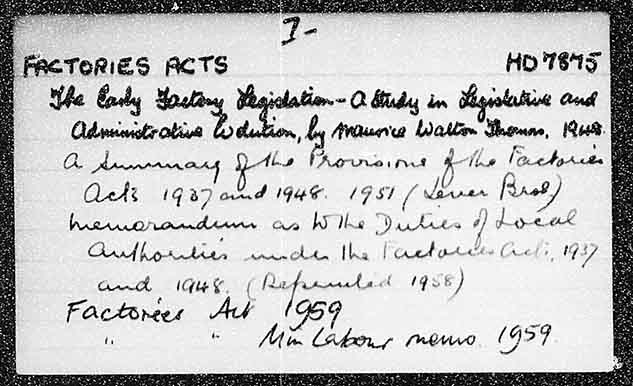 7-
FACTORIES ACTS HD7875
The Early Factory Legislation - A Study in Legislative and
Administrative Evolution, by Maurice Walton Thomas, 1948.
A Summary of the Provisions of the Factories
Acts 1937 and 1948. 1951 (Lever Bros)
Memorandum as to the Duties of Local
Authorities under the Factories Acts, 1937
and 1948. (Reprinted 1958)
Factories Act 1959
" " Min Labour memo. 1959.